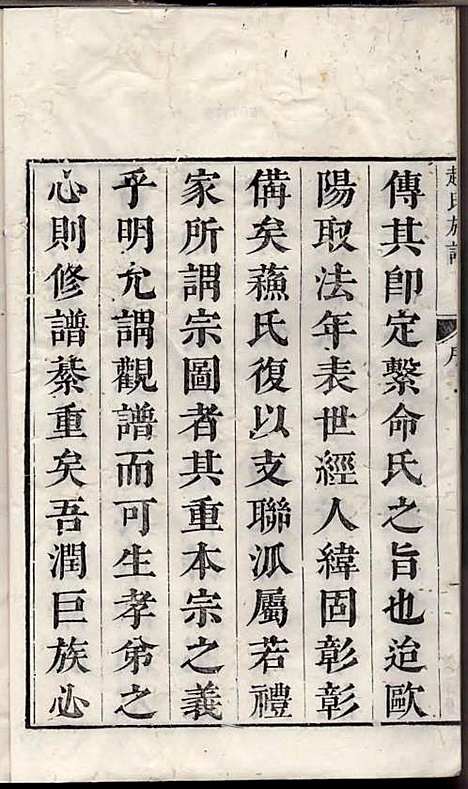 趙氏族譜
序
傳其卽定繫命氏之旨也迨歐
陽取法年表世經人緯固彰彰
備矣蘓氏復以支聯派屬若禮
家所謂宗圖者其重本宗之義
乎明允謂觀譜而可生孝弟之
心則修譜綦重矣吾潤巨族心